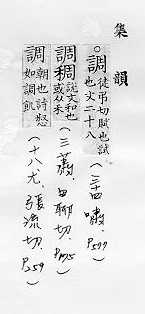 集韻
。調徒弔切賦也試
也文二十八(三十四嘯、P577)
調稠說文和也
或从禾(三蕭、田聊切、P175)
調朝也詩惄
如調飢(十八尤、張流切、P259)